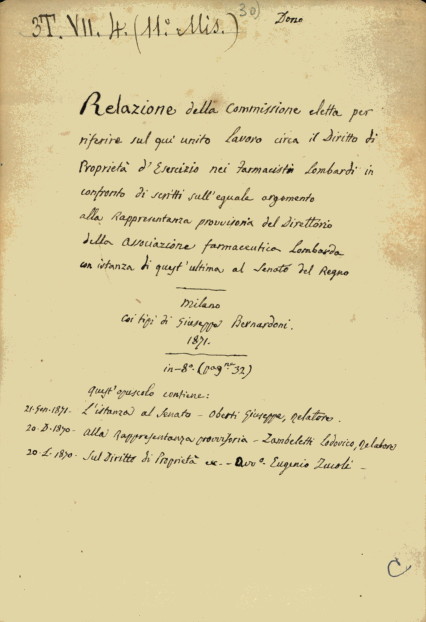 3T. VII. 4. (11.° Mis.) 30) Dono
Relazione della Commissione eletta per
riferire sul qui unito Lavoro circa il Diritto di
Proprietà d'Esercizio nei Farmacisti Lombardi in
confronto di scritti sull'eguale argomento
alla Rappresentanza provvisoria del Direttorio
della Associazione farmaceutica Lombarda
con istanza di quest'ultima al Senato del Regno
Milano
Coi tipi di Giuseppe Bernardoni.
1871.
in-8°. (pag.ne 32)
Quest'opuscolo contiene:
21. Gen. 1871. - L'istanza al Senato - Oberti Giuseppe, Relatore.
20. D. 1870 - Alla Rappresentanza provvisoria - Zambeletti Lodovico, Relatore
20. L. 1870 - Sul Diritto di Proprietà &c. - Avv°. Eugenio Zucoli -
C